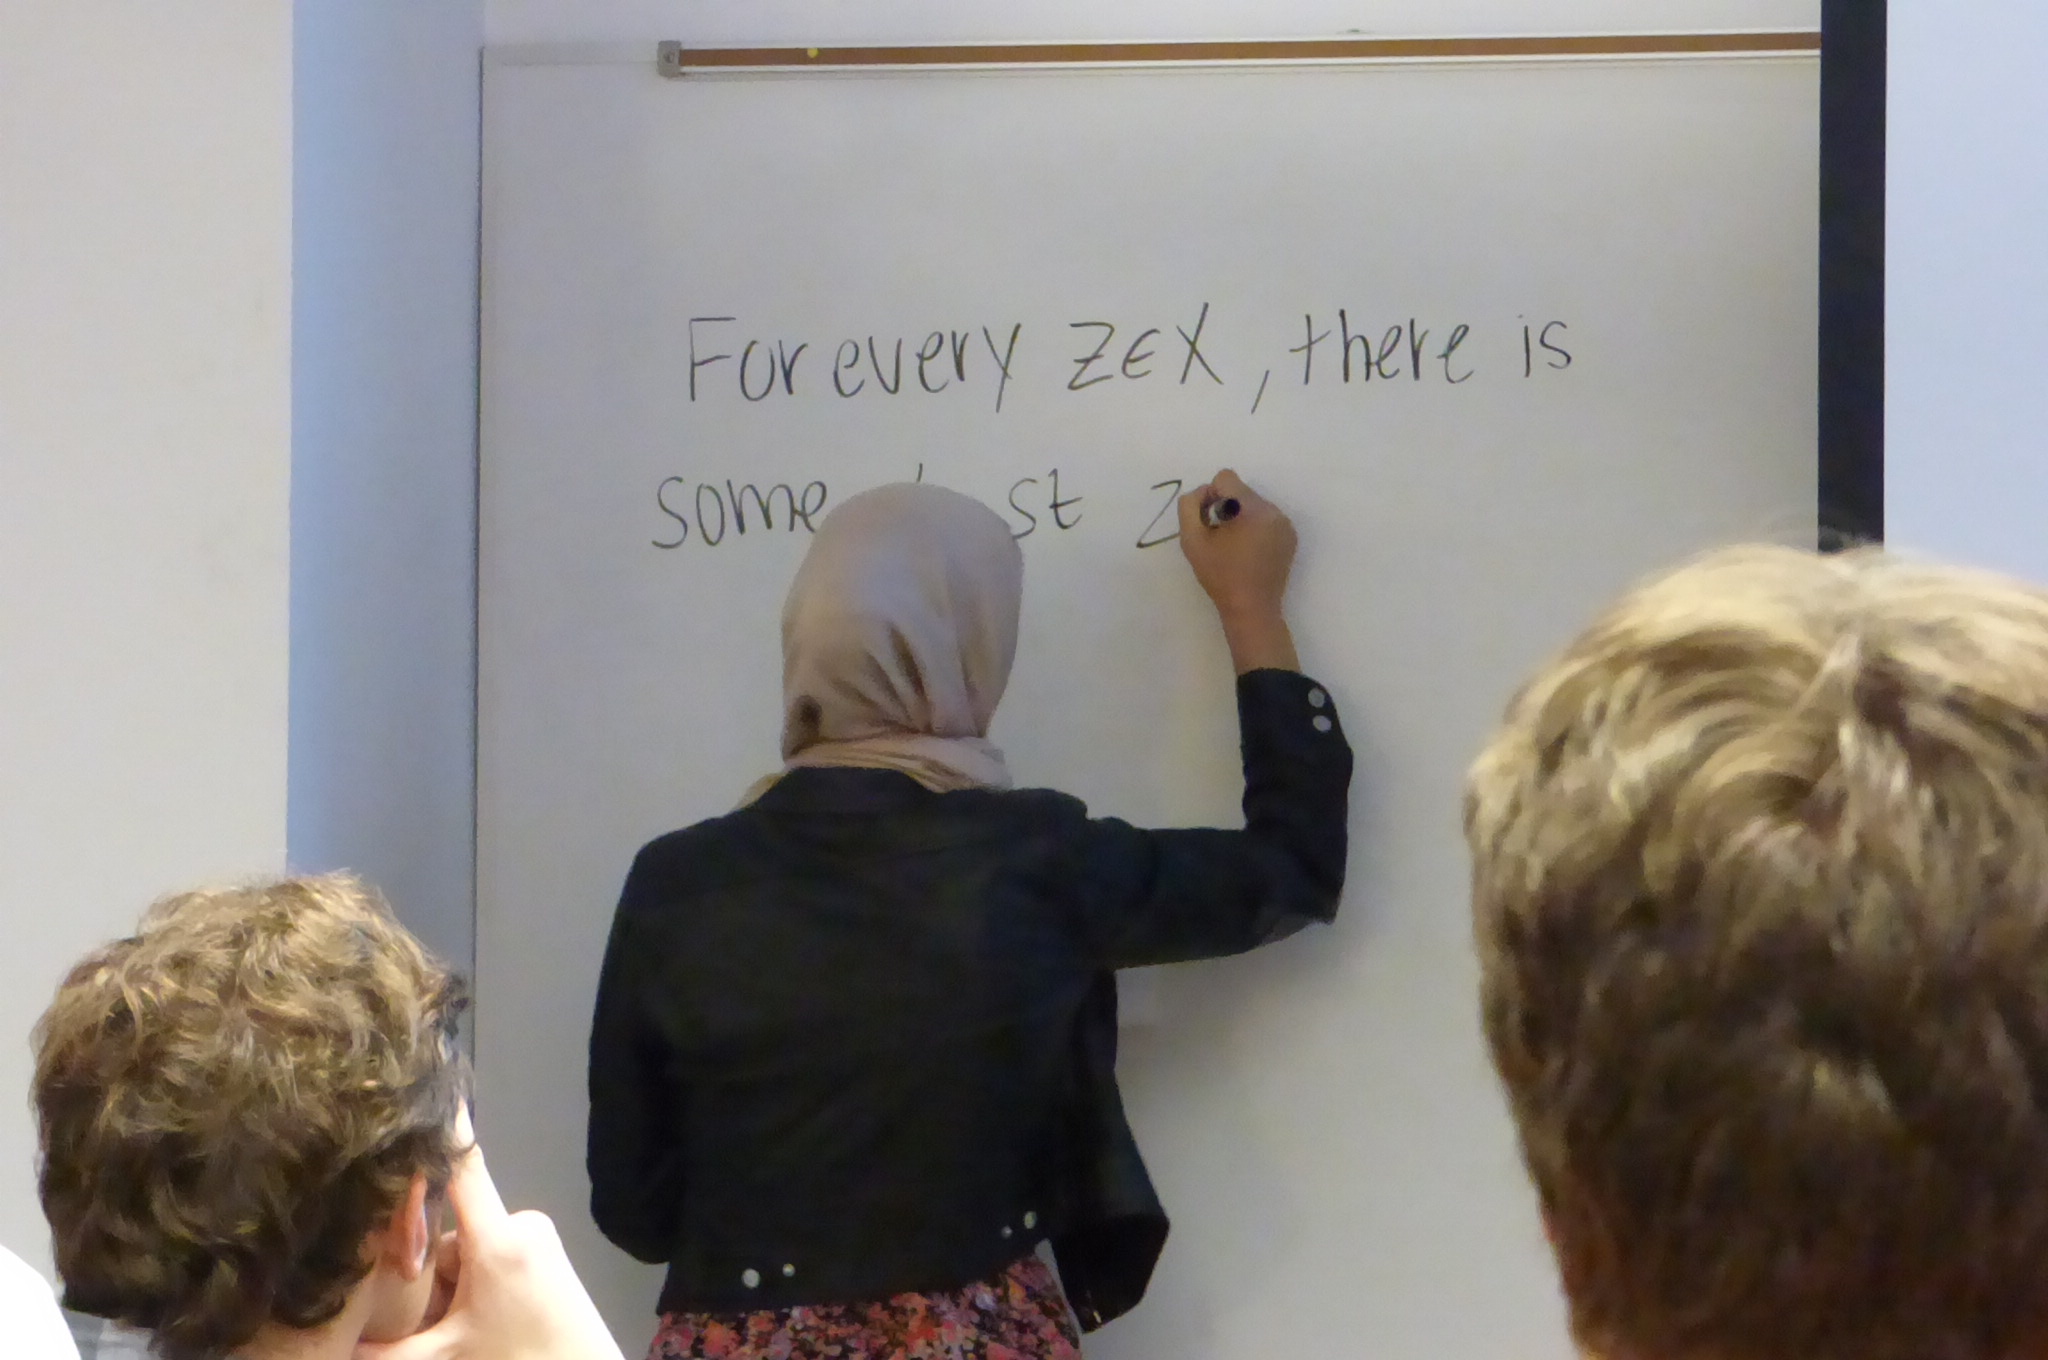 For every z∈X, there is
some st z